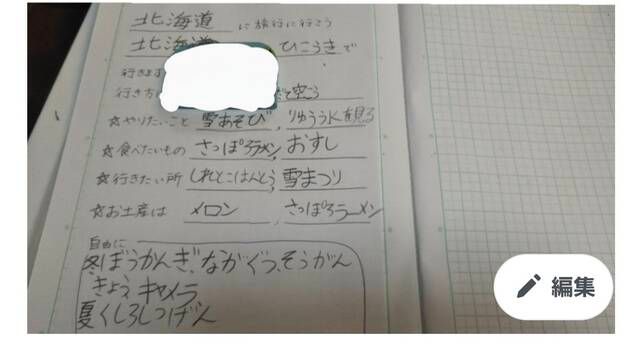 北海道に旅行に行こう
北海道 ひこうきで
行きます
行き方 空ろ
☆やりたいこと 雪あそび、りゅうひょうを見る
☆食べたいもの さっぽろラーメン、おすし
☆行きたい所 しれとこはんとう、雪まつり
☆お土産は メロン、さっぽろラーメン
自由に
冬ぼうかんぎ、ながぐつ、そうがん
きょう、キャメラ
夏くしろしつげん
編集